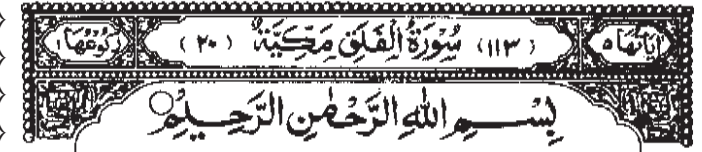 اٰيَاتُهَا ٥ (١١٣) سُوْرَةُ الْفَلَقِ مَكِّيَّةٌ (٢٠) رُكُوْعُهَا ١
بِسْمِ اللهِ الرَّحْمٰنِ الرَّحِيْمِ